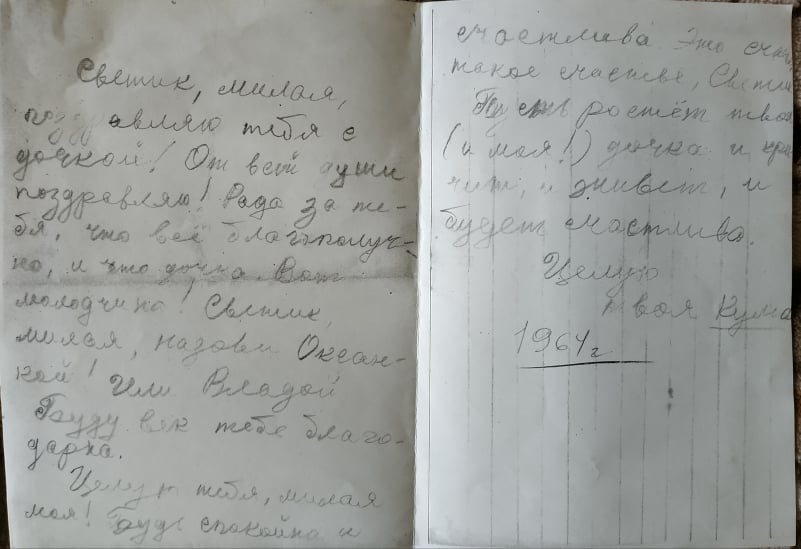 Светик, милая,
поздравляю тебя с
дочкой! От всей души
поздравляю! Рада за те-
бя, что всё благополуч-
но, и что дочка. Вот
молодчина! Светик,
милая, назови Океан-
кой! Или Владой
Буду век тебе благо-
дарна.
Целую тебя, милая
моя! Будь спокойна и
счастлива. Это
такое счастье,
Пусть ростёт твоя
(и моя!) дочка и кри-
чит, и живёт, и
будет счастлива.
Целую
твоя Кума
1964г